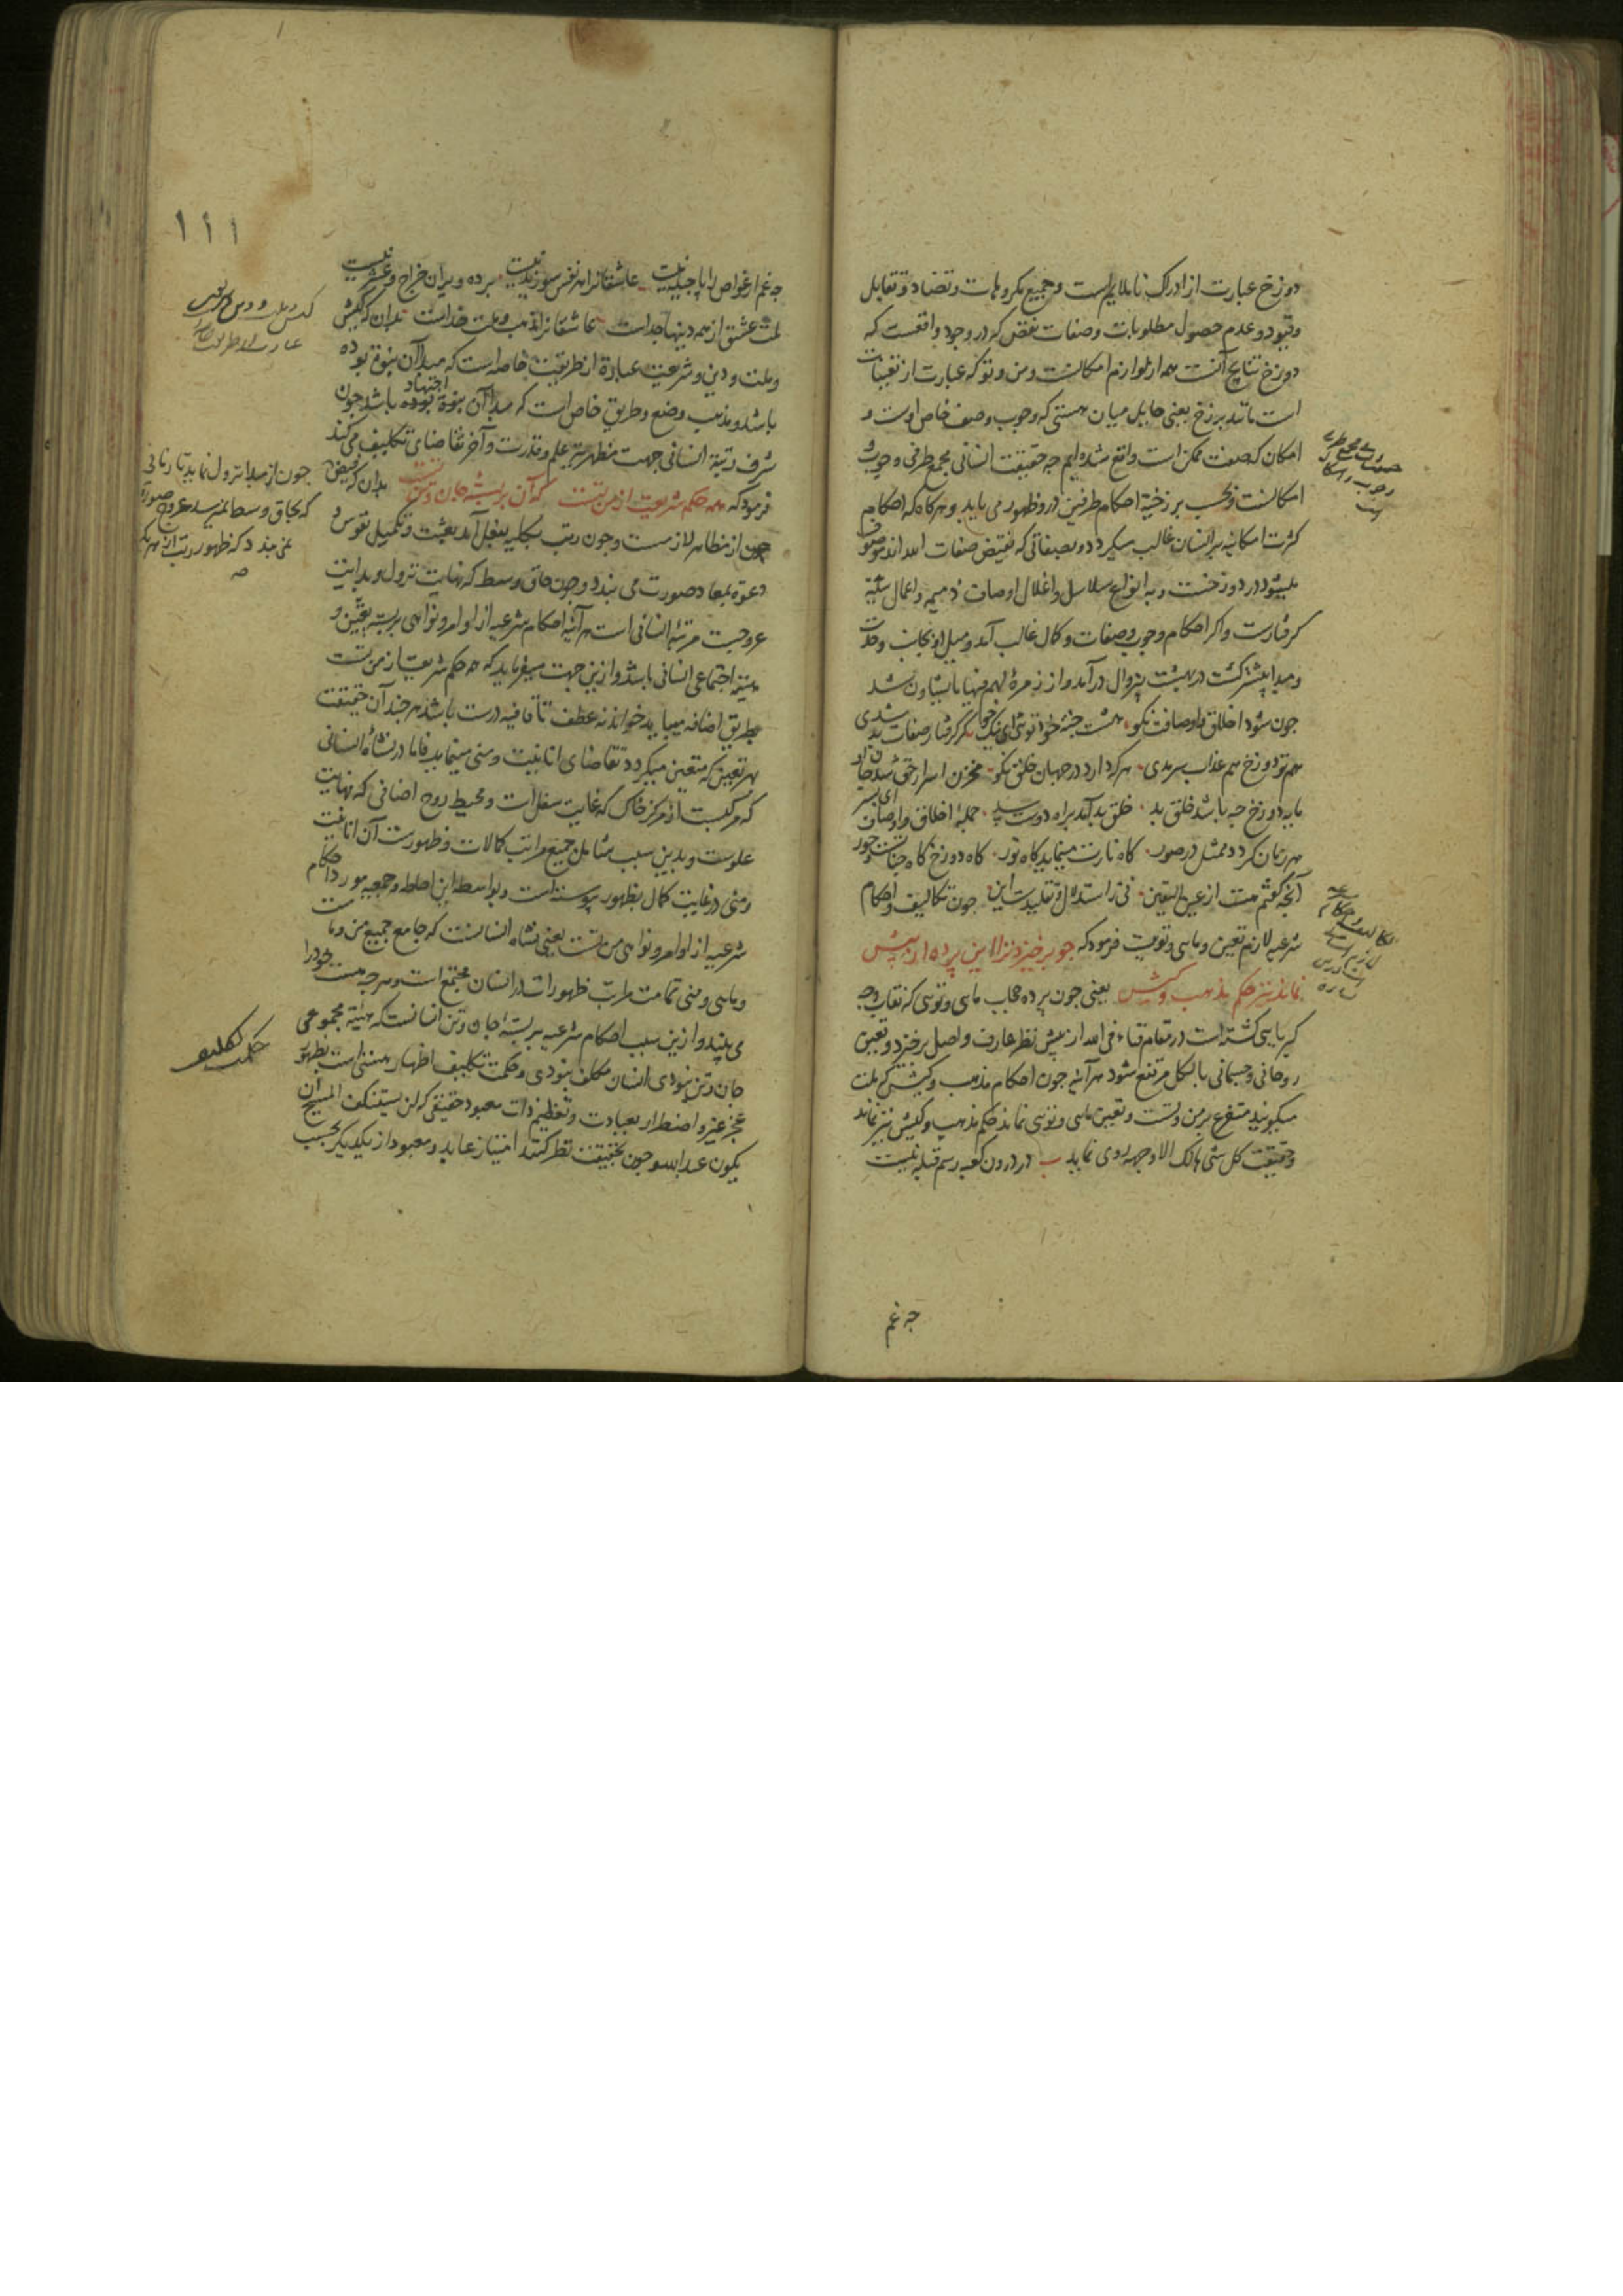 دوزخ عبارت از ادراک ناملایمست و جمیع مکروهات و تضاد و تقابل
و قیود و عدم حصول مطلوبات و صفات نقص که در وجود واقعست که
دوزخ نتایج آنست همه از لوازم امکانست و من و تو که عبارت از تعینات
است مانند برزخ یعنی حایل میان هستی که وجوب وصف خاص اوست و
امکان که صفت ممکن است واقع شده ایم چه حقیقت انسانی مجمع طرفی وجوب
امکانست و بحسب برزخیة احکام طرفین درو ظهور می یابد و هرکاه که احکام
کثرت امکانیه بر انسان غالب میکردد و بصفاتی که نقیض صفات الله اند موصوف
میشود در دوزخست و به انواع سلاسل و اغلال اوصاف ذمیمه و اعمال سیئه
کرفتارست و اکر احکام وجوب و صفات و کمال غالب آمد و میل او بجانب وحدت
و مبدا بیشتر کشت در بهشت بیزوال در آمد و از زمرهٔ لهم فیها ما یشاؤن شد
چون شود اخلاق و اوصافت نکو هشت جنت خود توئی ای نیک خو کر کرفتار صفات بد شدی
هم تو دوزخ هم عذاب سرمدی هرکه دارد در جهان خلق نکو مخزن اسرار حق شد جان او
مایه دوزخ چه باشد خلق بد خلق بد آمد براه دوست سد جملهٔ اخلاق و اوصاف ای پسر
هر زمان کردد ممثل در صور کاه نارت مینماید کاه نور کاه دوزخ کاه جنانست و حور
آنچه کفتم هست از عین الیقین نی ز استدلال و تقلیدست این چون تکالیف و احکام
شرعیه لازم تعین و مایی و تویست فرمود که چو برخیزد ترا این پرده از پیش
نماند نیز حکم مذهب و کیش یعنی چون پرده حجاب مایی و توئی که نقاب وجه
کبریایی کشته است در مقام فناء فی الله از پیش نظر عارف واصل برخیزد و تعین
روحانی و جسمانی بالکل مرتفع شود هر آینه چون احکام مذهب و کیش که ملت
میکویند متفرع بر من و تست و تعین مایی و توئی نماند حکم مذهب و کیش نیز نماند
و حقیقت کل شئ هالک الا وجهه روی نماید در درون کعبه رسم قبله نیست
چه غم
۱۱۱
چه غم ار غواص را پاچیله نیست عاشقانرا هر نفس سوزیدنیست بر ده ویران خراج و عشر نیست
ملت عشق از همه دینها جداست عاشقانرا مذهب و ملت خداست بدان که کیش
و ملت و دین و شریعت عبارة از طریقت خاصه است که مبدا آن نبوة بوده
باشد و مذهب وضع و طریق خاص است که مبدا آن اجتهاد بوده باشد چون
شرف رتبة انسانی جهت مظهریة علم و قدرت و آخر تقاضای تکلیف می کند
فرمود که همه حکم شریعت از من تست که آن بر بستهٔ جان و تن تست بدان که فیض
چون از مظاهر لازمست و چون رتب بکلیه بفعل آمد بعثت و تکمیل نفوس و
دعوة بمعاد صورت می بندد و چون حاق وسط که نهایت نزول و بدایت
عروجست مرتبهٔ انسانی است هر آینه احکام شرعیه از اوامر و نواهی بر بسته تعین و
هیئة اجتماعی انسانی باشد و از ین جهت میفرماید که همه حکم شریعت از من تست
بطریق اضافه میباید خواند نه عطف تا قافیه درست باشد هر چند آن حقیقت
بهر تعین که متعین میکردد تقاضای انانیت و منی مینماید فاما در نشأهٔ انسانی
که مرکبست از مرکز خاک که غایت سفل است و محیط روح اضافی که نهایت
علوست و بدین سبب شامل جمیع مراتب کمالات و ظهورست آن انانیت
و منی در غایت کمال بظهور پیوسته است و بواسطه این احاطه و جمعیه مورد احکام
شرعیه از اوامر و نواهی من تست یعنی نشاه انسانست که جامع جمیع من و ما
و مایی و منی تمامت مراتب ظهوراتست در انسان مجتمع است و هر چه هست خود را
می بیند و از ین سبب احکام شرعیه بر بستهٔ جان و تن انسانست که هیئة مجموعی
جان و تن نبودی انسان مکلف نبودی و حکمت تکلیف اظهار هستی است بظهور
عجز غیر و اضطرار بعبادت و تعظیم ذات معبود حقیقی که لن یستنکف المسیح ان
یکون عبدا لله و چون بحقیقت نظر کنند امتیاز عابد و معبود از یکدیکر بحسب
چون از مبدا نزول نماید تا زمانی
که بحاق وسط نمیرسد عروج صورة
نمی بندد که ظهور رتب
حکمت تکلیف